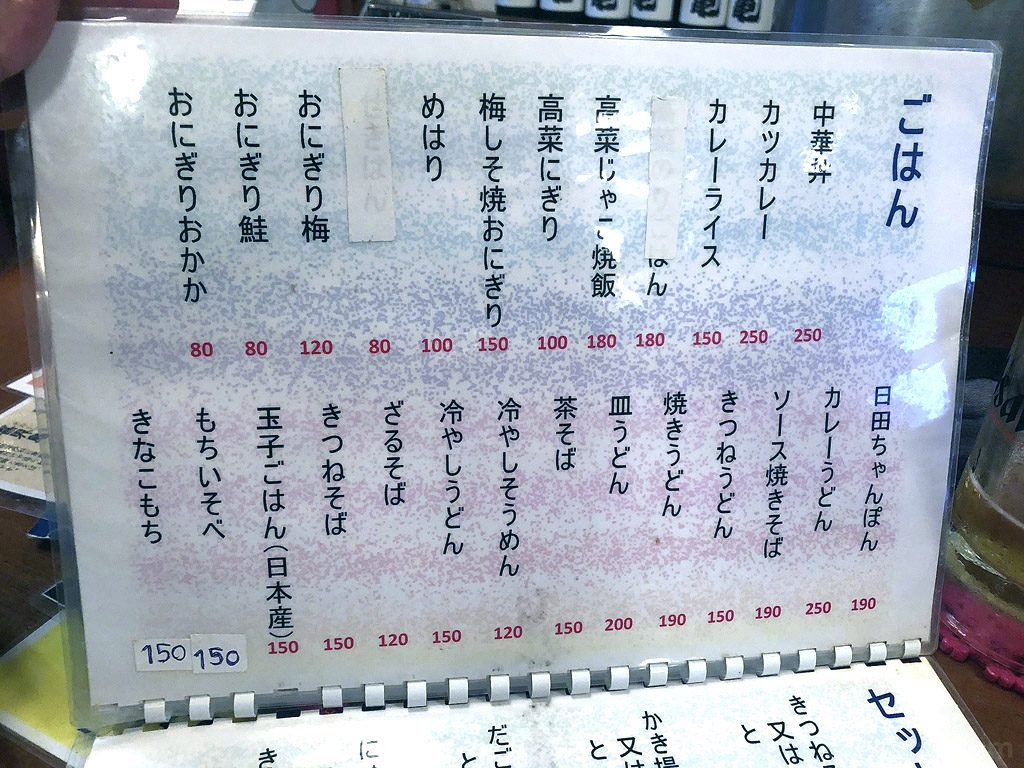 ごはん
中華丼
250
カツカレー
250
カレーライス
150
はん
180
高菜じゃこ焼飯
180
高菜にぎり
100
梅しそ焼おにぎり
150
めはり
100
80
おにぎり梅
120
おにぎり鮭
80
おにぎりおかか
80
日田ちゃんぽん
190
カレーうどん
250
ソース焼きそば
190
きつねうどん
150
焼きうどん
190
皿うどん
200
茶そば
150
冷やしそうめん
120
冷やしうどん
150
ざるそば
120
きつねそば
150
玉子ごはん(日本産)
150
もちいそべ
150
きなこもち
150
セッ
きつね
又は
と
かき揚
又は
と
だご
と
に
き